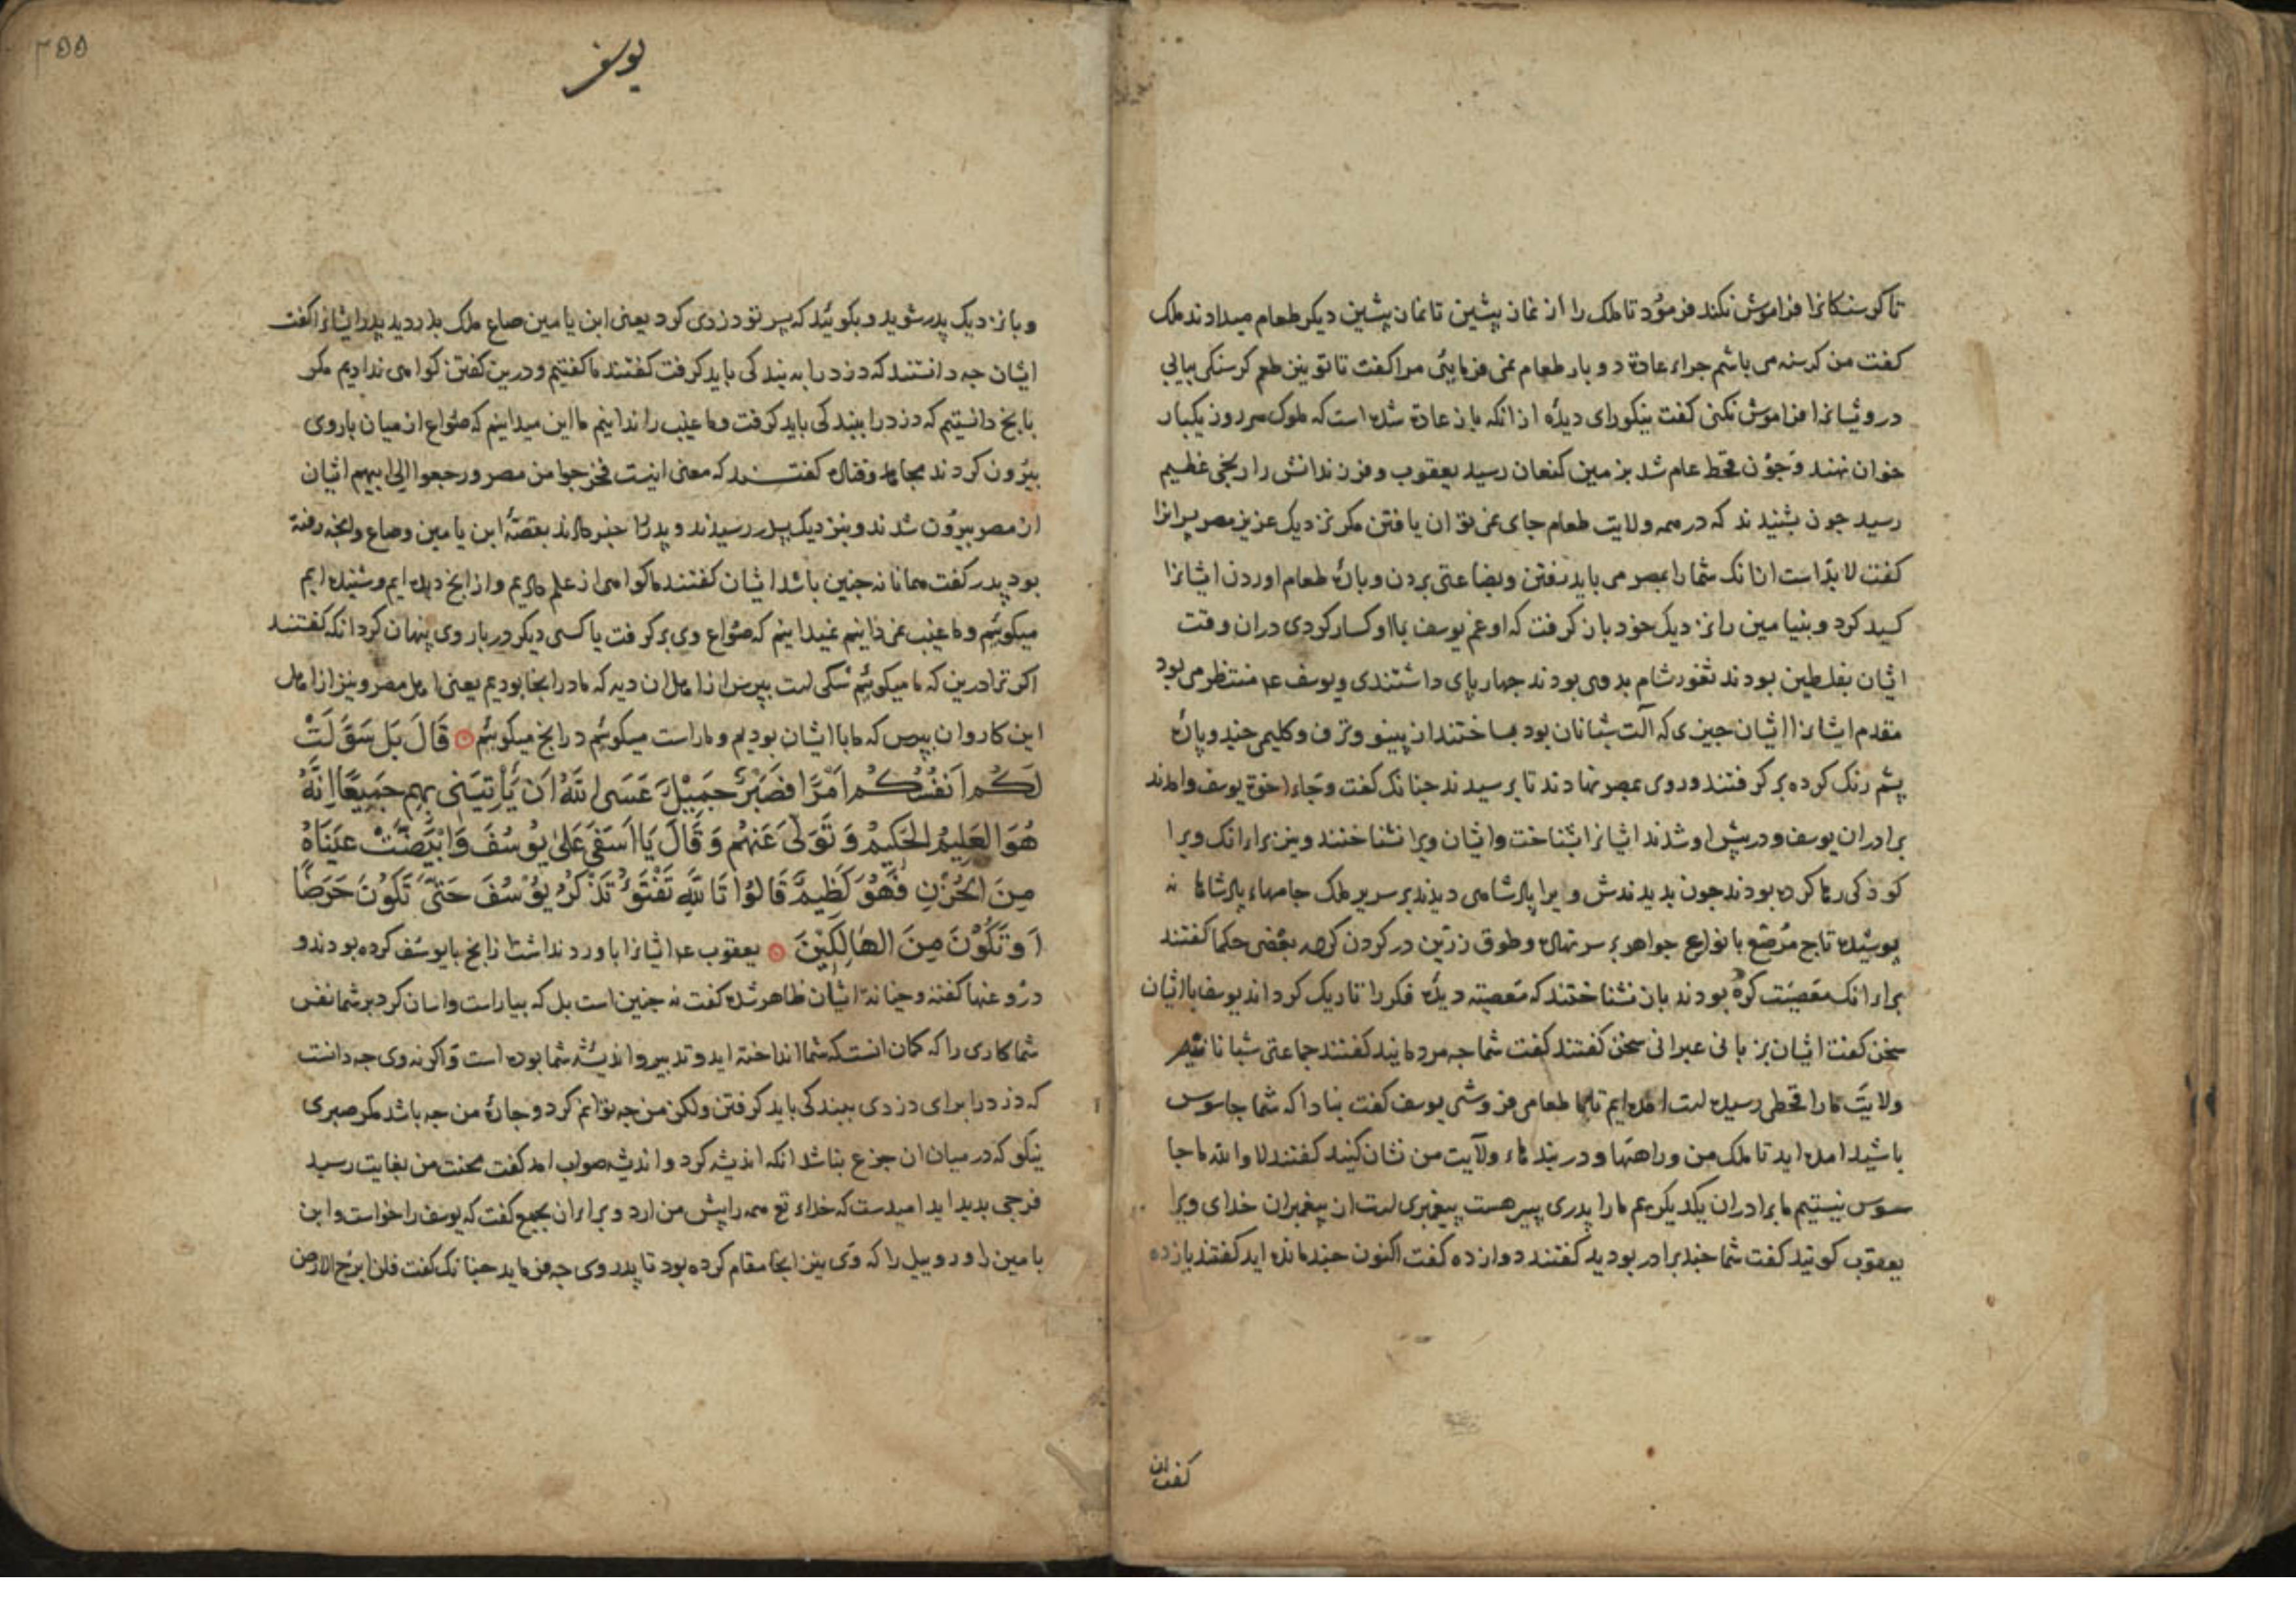 تا کرسنکانرا فراموش نکند فرمود تا ملک را از نماز پیشین تا نماز پیشین دیکر طعام میدادند ملک
کفت من کرسنه می باشم جراء عادة دو بار طعام نمی فرمایی مرا کفت تا تو نیز طعم کرسنکی بیابی
درویشانرا فراموش نکنی کفت نیکو رای دیدهٔ از انکه باز عادة شده است که ملوک هر روز یکبار
خوان نهند و جون قحط عام شد بزمین کنعان رسید یعقوب و فرزندانش را رنجی عظیم
رسید جون بشنیدند که در همه ولایت طعام جای نمی توان یافتن مکر نزدیک عزیز مصر پسرانرا
کفت لابد است انانک شما را بمصر می باید رفتن و بضاعتی بردن و بارهٔ طعام اوردن ایشانرا
کسید کرد و بنیامین را نزدیک خود باز کرفت که او غم یوسف باو کسار کردی دران وقت
ایشان بفلسطین بودند ثغور شام بدوی بودند جهارپای داشتندی و یوسف عم منتظر می بود
مقدم ایشانرا ایشان جیزی که آلت شبانان بود بساختند از پینو و ترف و کلیمی جند و پارهٔ
پشم رنک کرده بر کرفتند و روی بمصر نهادند تا برسیدند جنانک کفت و جاء اخوة یوسف و امدند
برادران یوسف و در پیش او شدند ایشانرا بشناخت و ایشان ویرا نشناختند و نیز برا انک ویرا
کوذکی رها کرده بودند جون بدیدندش ویرا پادشاهی دیدند بر سریر ملک جامهاء پادشاها نه
پوشیده تاج مرصع بانواع جواهر بر سر نهاده و طوق زرین در کردن کرده بعضی حکما کفتند
برا انک معصیت کرده بودند باز نشناختند که معصیة دیدهٔ فکر را تاریک کرداند یوسف با ایشان
سخن کفت ایشان بزبانی عبرانی سخن کفتند کفت شما جه مردمانید کفتند جماعتی شبانانیم
ولایت ما را قحطی رسیده است امده ایم تا ما طعامی فروشی یوسف کفت بنادا که شما جاسوس
باشید امده اید تا ملک من و راهها و دربندهاء ولایت من نشان کنید کفتند لا والله ما جا
سوس نیستیم ما برادران یکدیکریم ما را پدری پیر هست پیغمبری است از پیغمبران خدای ویرا
یعقوب کویند کفت شما جند برادر بودید کفتند دوازده کفت اکنون جند مانده اید کفتند یازده
کفت ان
۲۵۵
یوسف
و باز نزدیک پدر شوید و بکوئید که پسر تو دزدی کرد یعنی ابن یامین صاع ملک بدزدید پدر ایشانرا کفت
ایشان جه دانستند که دزد را به بندکی باید کرفت کفتند ما کفتیم و درین کفتن کواهی ندادیم مکر
بانج دانستیم که دزد را ببندکی باید کرفت و ما غیب را ندانیم ما این میدانیم که صواع از میان باروی
بیرون کردند مجاهد و قتاده کفتند که معنی اینست فخرجوا من مصر و رجعوا الی ابیهم ایشان
از مصر بیرون شدند و بنزدیک پدر رسیدند و پدر را خبر دادند بقصهٔ ابن یامین و صاع و انجه رفته
بود پدر کفت همانا نه جنین باشد ایشان کفتند ما کواهی از علم دادیم و از انج دیده ایم و شنیده ایم
میکوئیم و ما غیب نمی دانیم نمیدانیم که صواع وی بر کرفت یا کسی دیکر در بار وی پنهان کرد انکه کفتند
اکر ترا درین که ما میکوئیم شکی است بپرس از اهل ان دیه که ما در انجا بودیم یعنی اهل مصر و نیز از اهل
این کاروان بپرس که ما با ایشان بودیم و ما راست میکوئیم در انج میکوئیم قَالَ بَل سَوَّلَتْ
لَكُم اَنفُسُكُم اَمْرًا فَصَبْرٌ جَمِيْلٌ عَسَى اللهُ اَن يَأتِيَنِى بِهِم جَمِيعًا اِنَّهُ
هُوَ العَلِيمُ الحَكِيمُ وَتَوَلَّى عَنهُم وَقَالَ يَا اَسَفَى عَلَى يُوسُفَ وَابْيَضَّتْ عَينَاهُ
مِنَ الحُزْنِ فَهُوَ كَظِيمٌ قَالُوا تَاللهِ تَفْتَؤُ تَذْكُرُ يُوسُفَ حَتّٰى تَكُونَ حَرَضًا
اَو تَكُوْنَ مِنَ الهَالِكِيْنَ یعقوب عم ایشانرا باور نداشت از انج با یوسف کرده بودند و
دروغها کفته و خیانة ایشان ظاهر شده کفت نه جنین است بل که بیاراست و اسان کرد بر شما نفس
شما کاری را که کمان انست که شما انداخته اید و تدبیر و اندیشه شما بوده است و اکر نه وی جه دانست
که دزد را برای دزدی ببندکی باید کرفتن و لکن من جه توانم کرد و جارهٔ من جه باشد مکر صبری
نیکو که در میان ان جزع نباشد انکه اندیشه کرد و اندیشه صواب امد کفت محنت من بغایت رسید
فرجی بدید اید امیدست که خداء تع همه را پیش من ارد و برادران بجمع کفت که یوسف را خواست و ابن
یامین را و روبیل را که وی نیز انجا مقام کرده بود تا پدر وی جه فرماید جنانک کفت فلن ابرح الارض